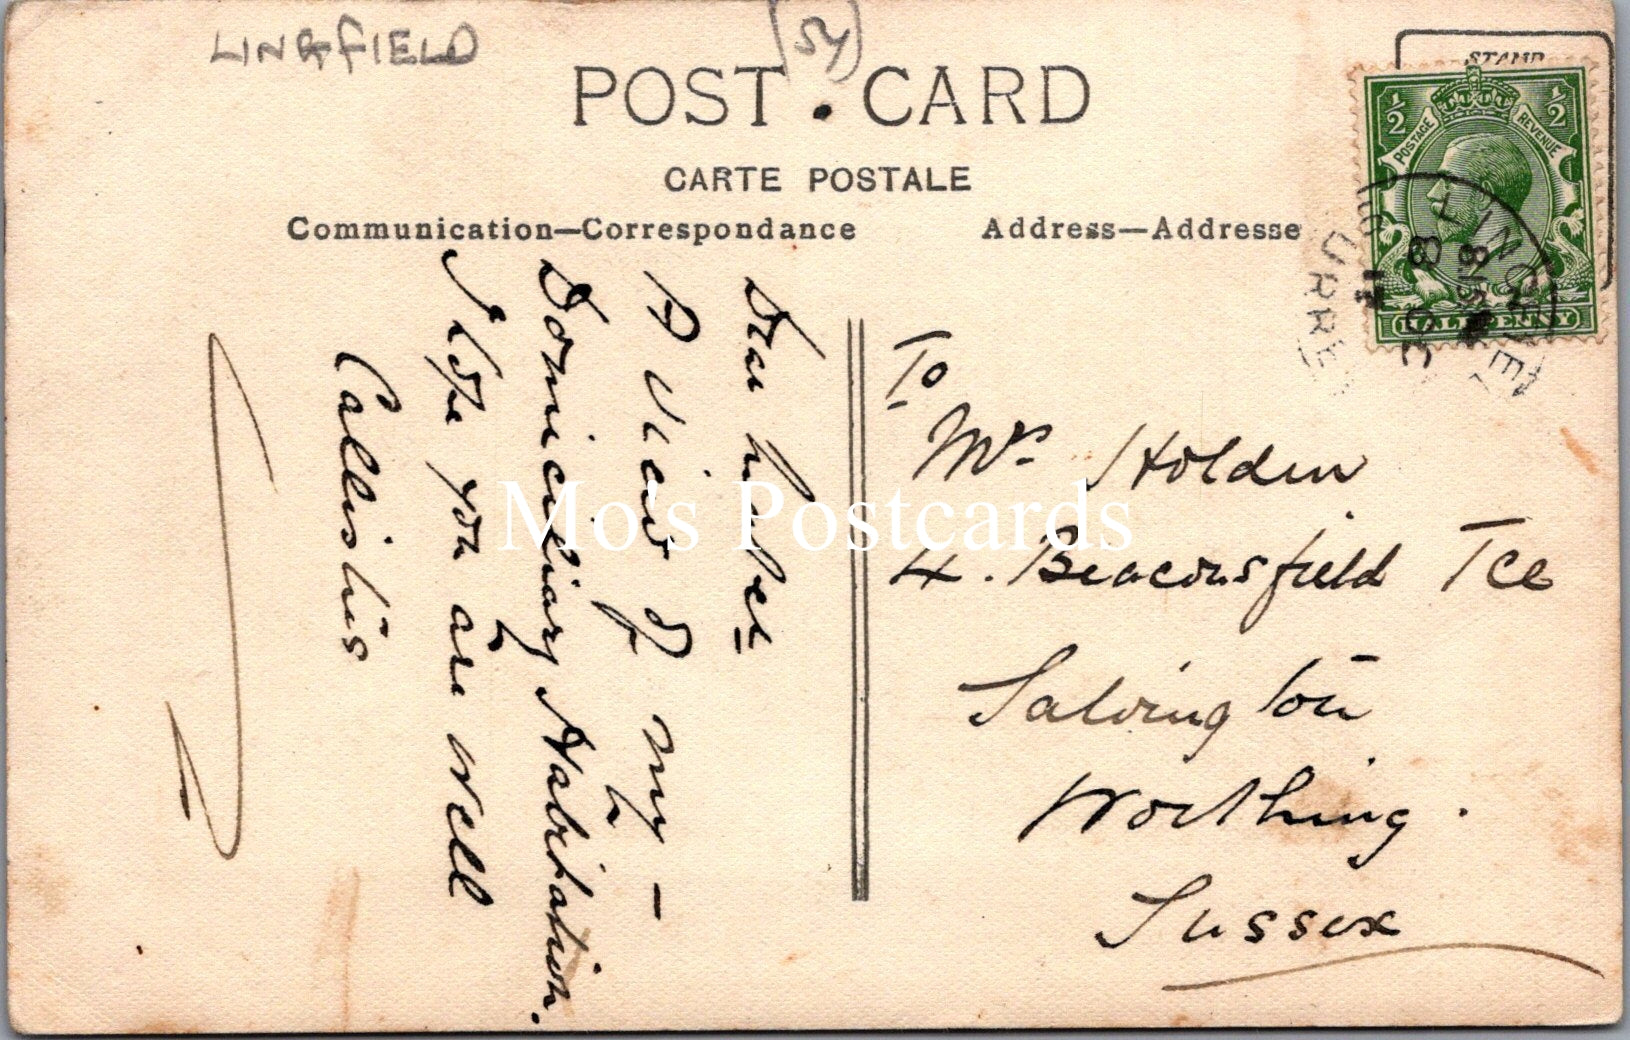 LINGFIELD
54
POST CARD
CARTE POSTALE
Communication—Correspondance
Address—Addresse
STAMP
½ ½
POSTAGE REVENUE
HALFPENNY
LINGFIELD
SURREY
Dear
A View of my —
Domiciliary Habitation.
I hope you are well
Callistus
To
Mrs Holden
4. Beaconsfield Tce
Salvington
Worthing.
Sussex
Mo's Postcards